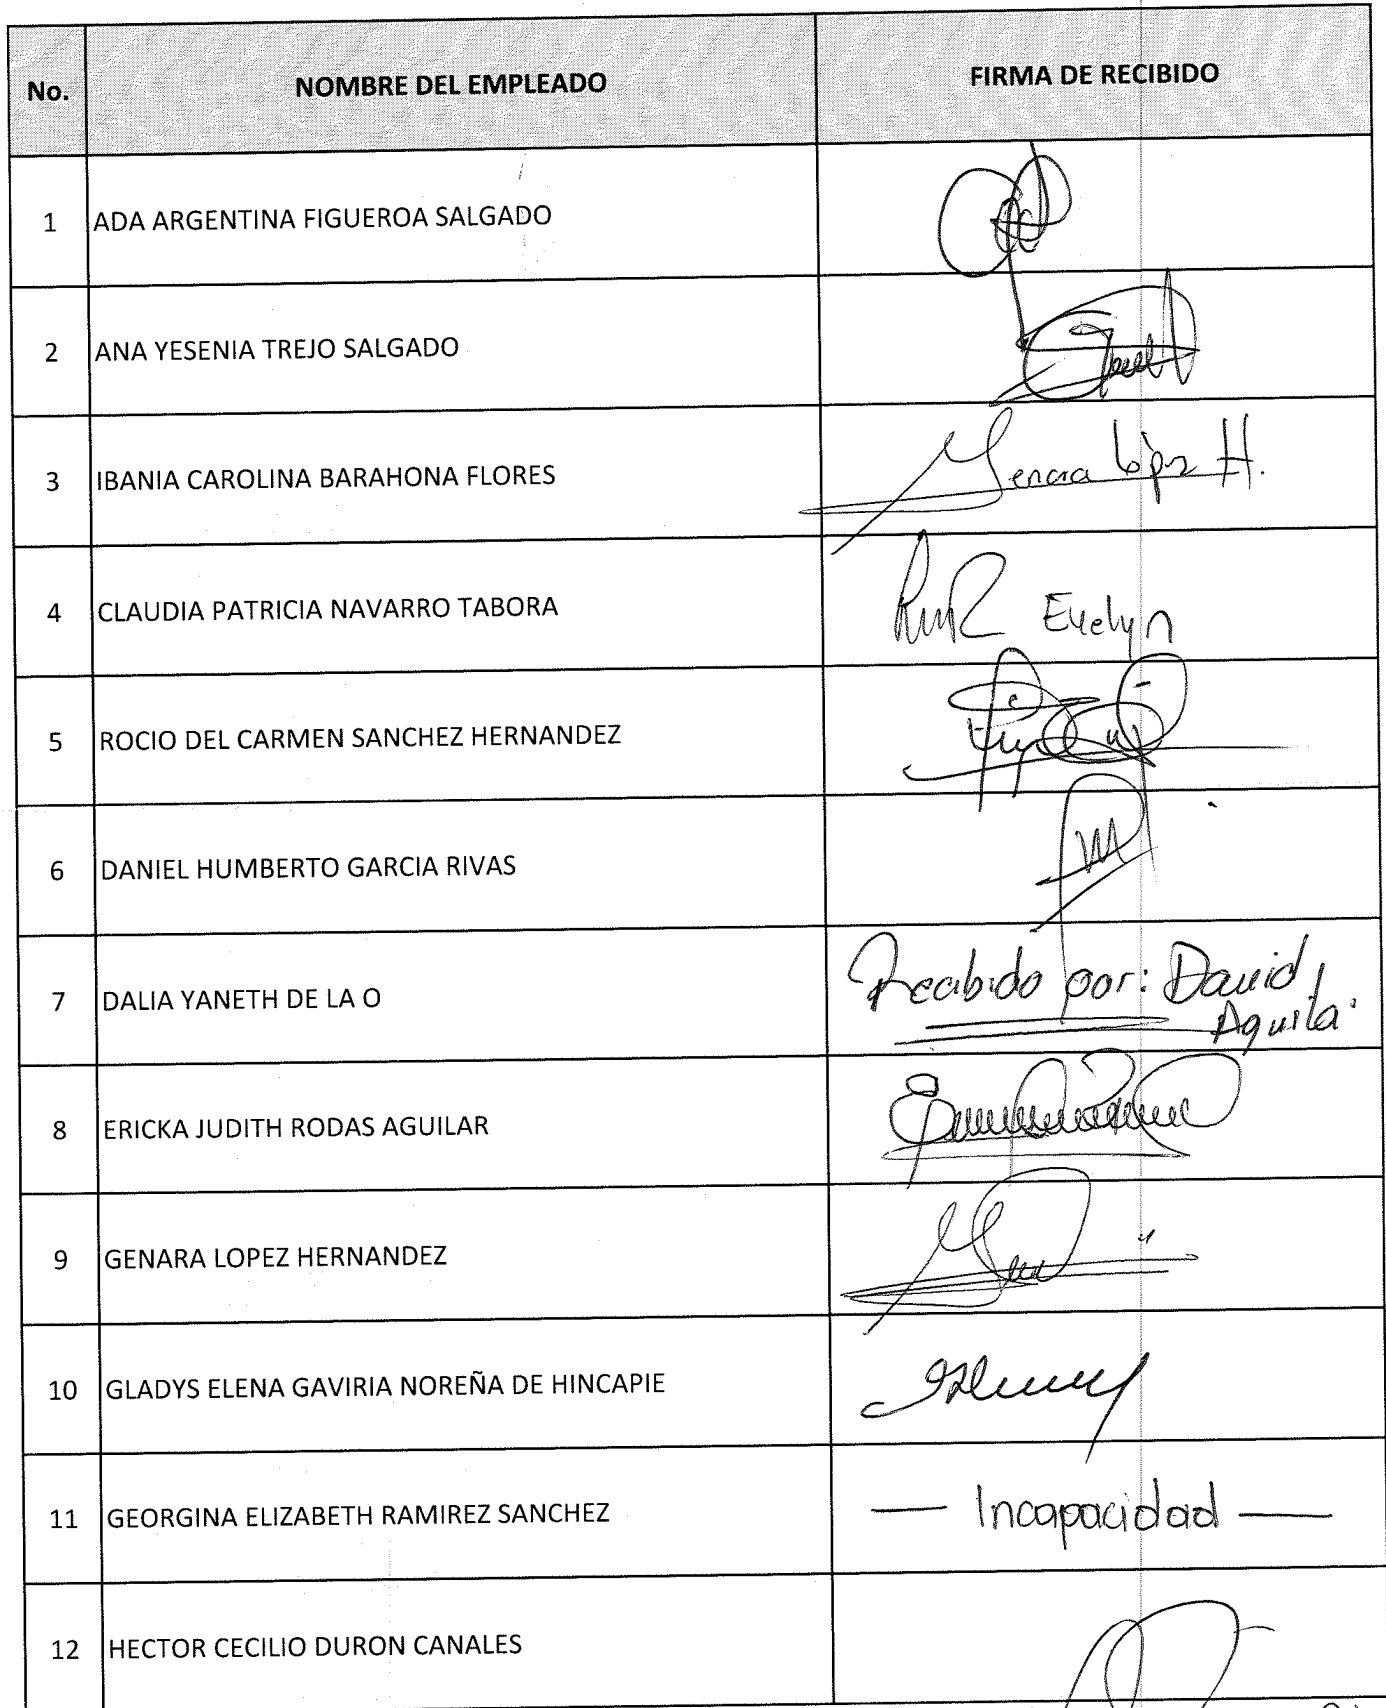 No. NOMBRE DEL EMPLEADO FIRMA DE RECIBIDO
1 ADA ARGENTINA FIGUEROA SALGADO
2 ANA YESENIA TREJO SALGADO
3 IBANIA CAROLINA BARAHONA FLORES Genara López H.
4 CLAUDIA PATRICIA NAVARRO TABORA Evelyn
5 ROCIO DEL CARMEN SANCHEZ HERNANDEZ
6 DANIEL HUMBERTO GARCIA RIVAS
7 DALIA YANETH DE LA O Recibido por: David
Aguila
8 ERICKA JUDITH RODAS AGUILAR
9 GENARA LOPEZ HERNANDEZ
10 GLADYS ELENA GAVIRIA NOREÑA DE HINCAPIE
11 GEORGINA ELIZABETH RAMIREZ SANCHEZ — Incapacidad —
12 HECTOR CECILIO DURON CANALES